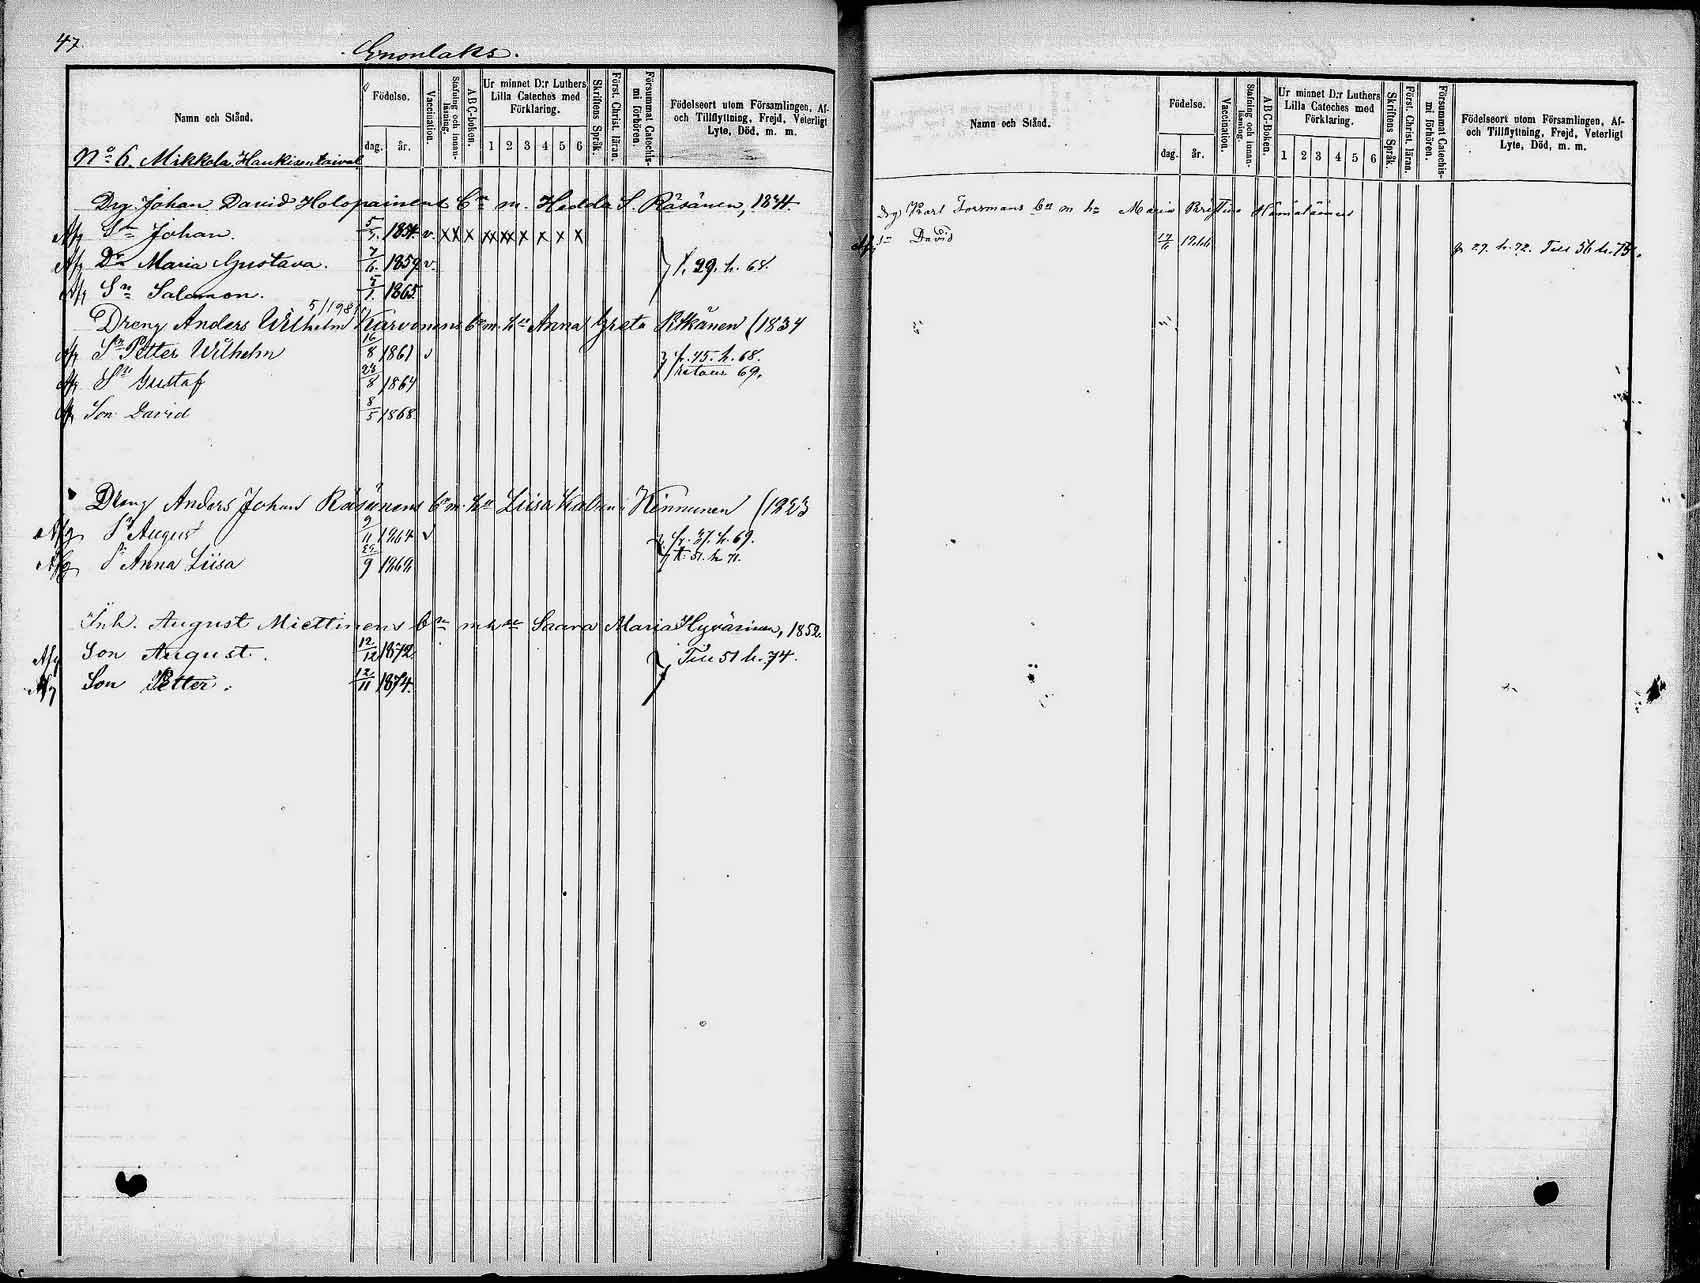 47.
Enonlaks.
Namn och Stånd.
Födelse.
dag. år.
Vaccination.
Stafning och innan-läsning.
ABC-boken.
Ur minnet D:r Luthers Lilla Cateches med Förklaring.
1 2 3 4 5 6
Skriftens Språk.
Först. Christ. läran.
Försummat Catechis-mi förhören
Födelseort utom Församlingen, Af- och Tillflyttning, Frejd, Veterligt Lyte, Död, m. m.
No 6. Mikkola, Haukisentaival
Drg. Johan David Holopainens Bn m. Hedda S. Räsänen, 1834.
Afg Sn Johan. 5/7. 1854. v. x x x x x x x x x x x
Afg Dr Maria Gustava. 7/6. 1859 v. f. 29. h. 68.
Afg Sn Salomon. 5/1. 1865.
5/1981
Dreng Anders Wilhelm Karvonens bn m. h. Anna Greta Pitkänen (1834
Afg Sn Petter Wilhelm 16/8 1861 v fr. 45. h. 68.
Afg Sn Gustaf 23/8 1864 69.
Afg Son David 8/5 1868.
Dreng Anders Johan Räsänens bn m. h. Liisa Kinnunen (1823
Afg Sn August 9/11 1864 v fr. 37. h. 69.
Afg Anna Liisa 25/9 1868 t. 51. h. 71.
Inh. August Miettinens bn m h Saara Maria Hyvärinen, 1852.
Afg Son August. 12/12 1872. Till 51 h. 74.
Afg Son Petter. 12/11 1874.
Namn och Stånd.
Födelse.
dag. år.
Vaccination.
Stafning och innan-läsning.
ABC-Boken.
Ur minnet D:r Luthers Lilla Cateches med Förklaring.
1 2 3 4 5 6
Skriftens Språk.
Först. Christ. läran.
Försummat Catechis-mi förhören.
Födelseort utom Församlingen, Af- och Tillflyttning, Frejd, Veterligt Lyte, Död, m. m.
Drg Karl Forsmans bn m h Maria Kristina Hämäläinen
Afg Sn David 17/11 1866 fr 27. h. 72. Till 56 h. 75.